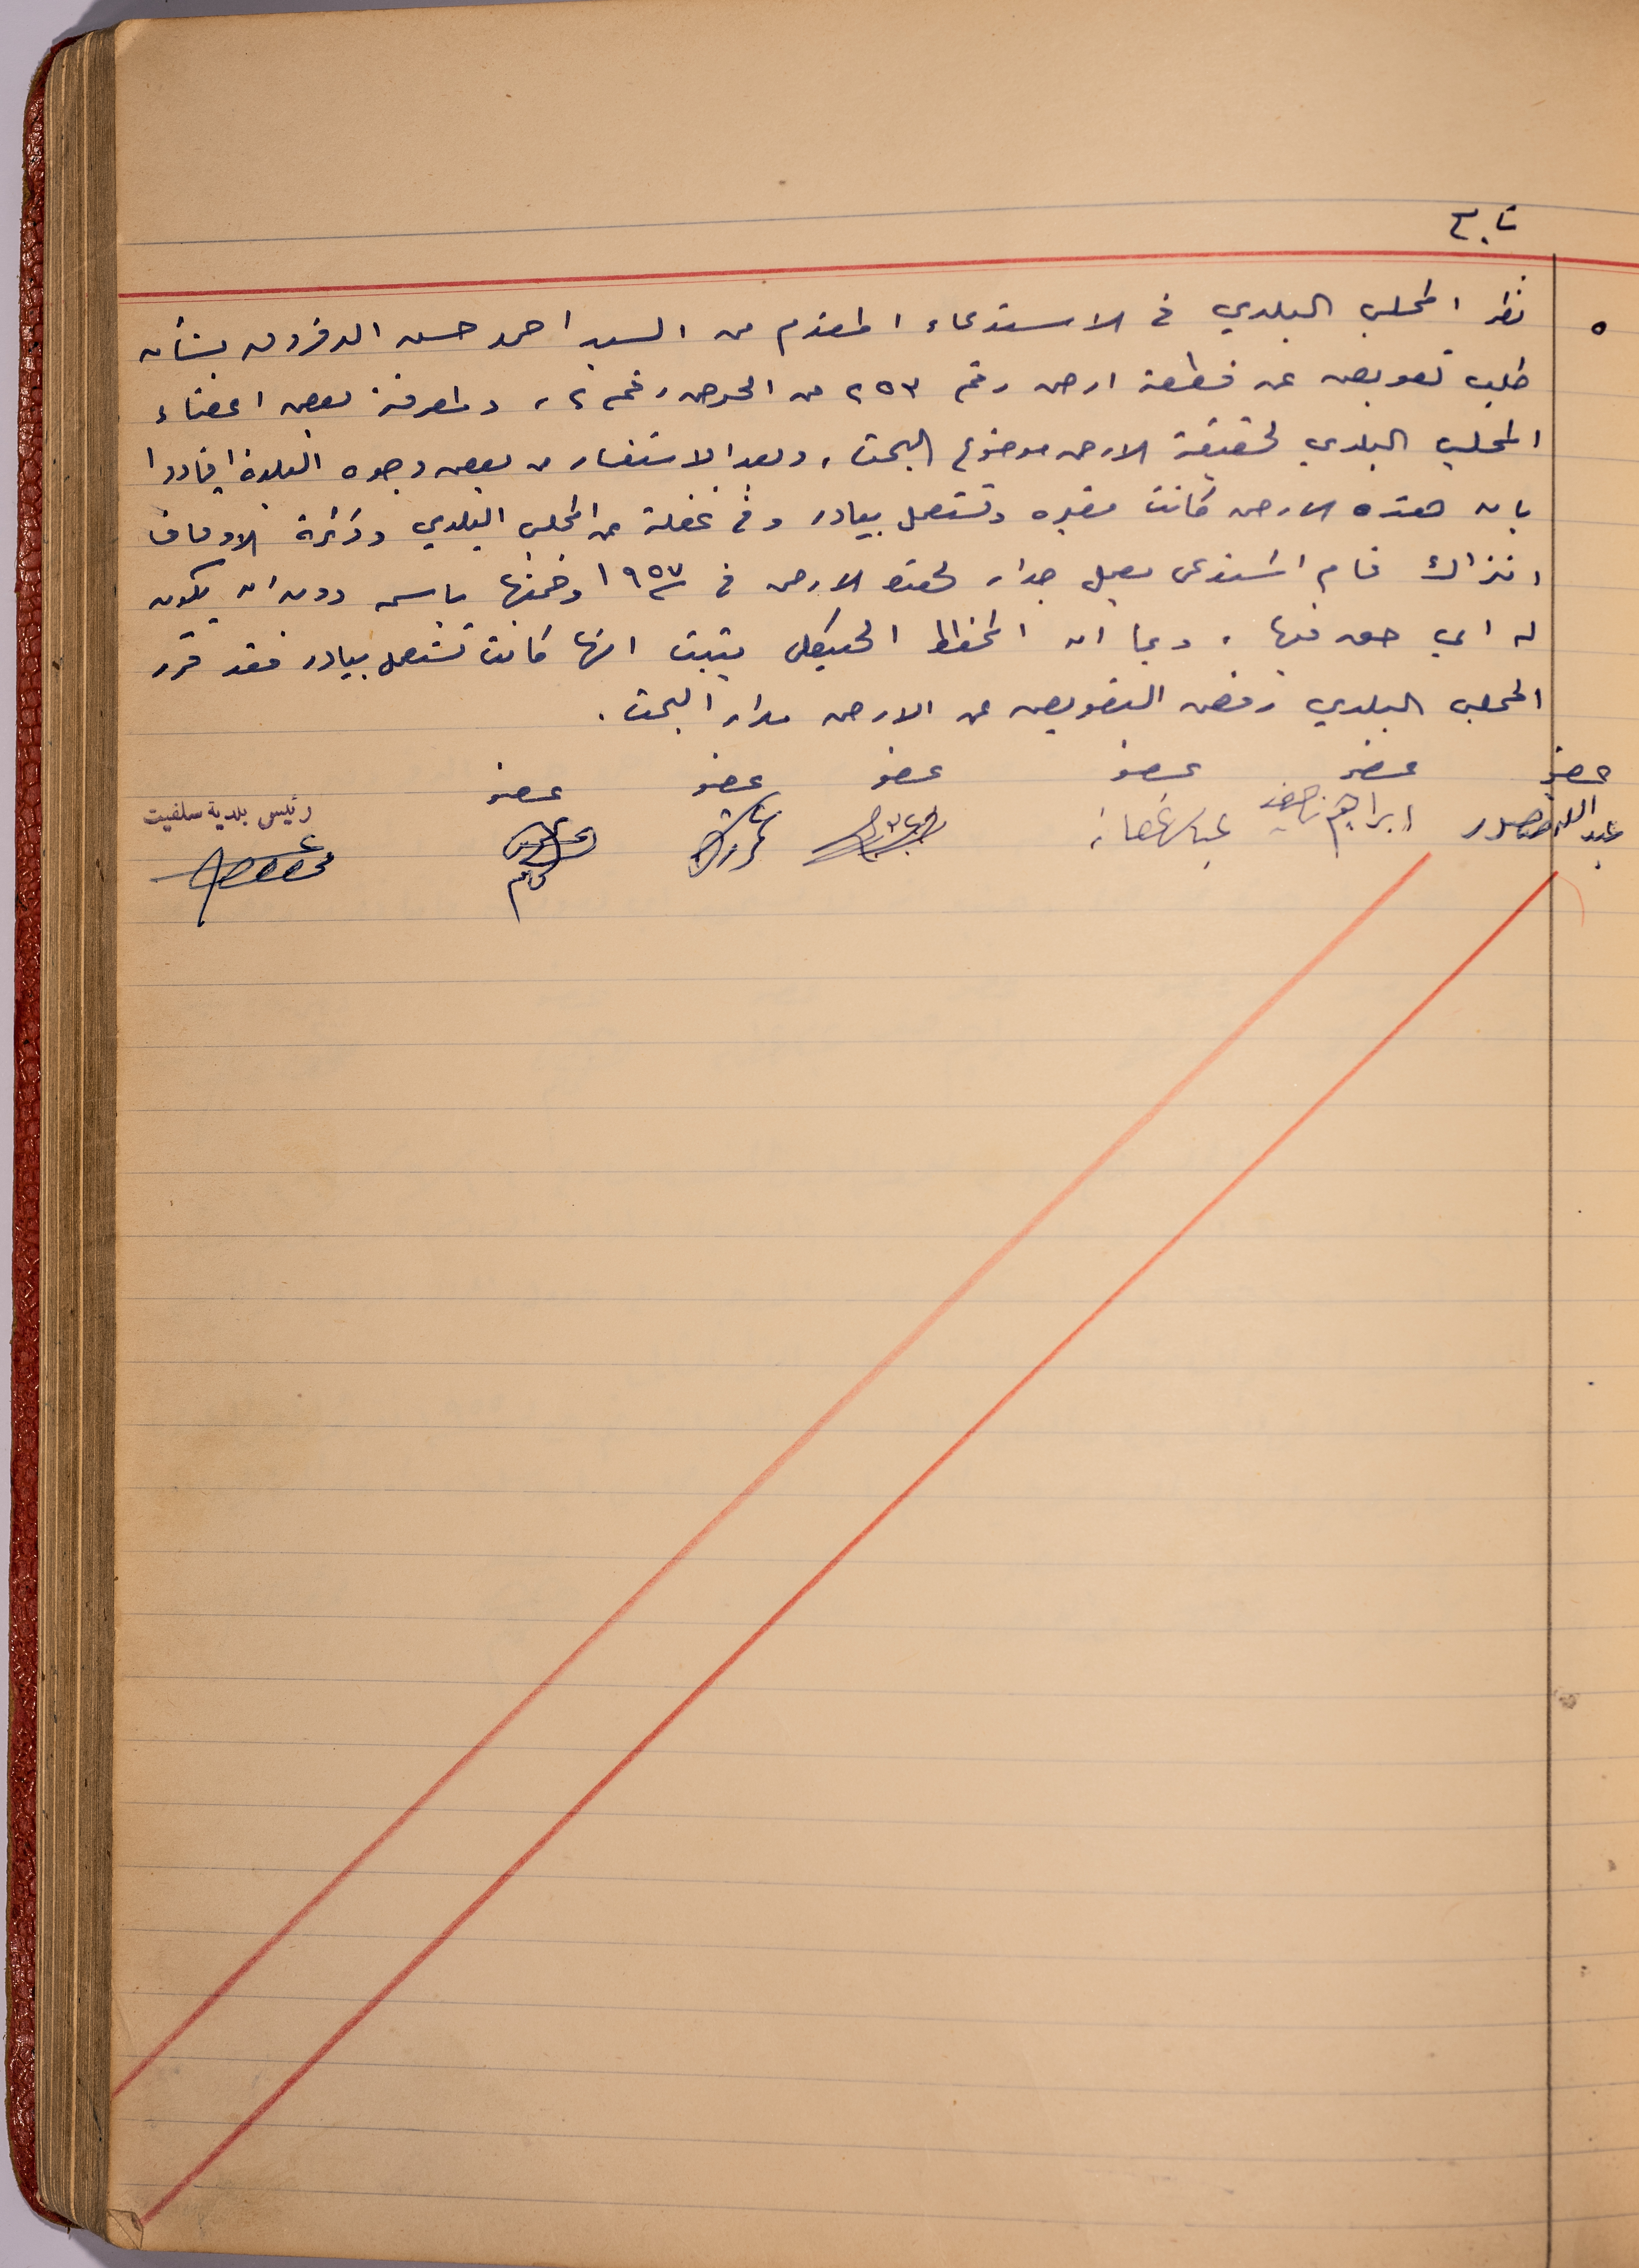 تابع
٥ نظر المجلس البلدي في الاستدعاء المقدم من السيد احمد حسن الدقروق بشأن
طلب تعويض عن قطعة ارض رقم ٢٥٣ من الحوض رقم ٢، ولمعرفة بعض اعضاء
المجلس البلدي لحقيقة الارض موضوع البحث، وبعد الاستفسار من بعض وجوه البلدة افادوا
بان هذه الارض كانت مقبره وتستعمل بيادر وفي غفلة من المجلس البلدي ودائرة الاوقاف
انذاك قام المستدعي بعمل جدار لهذه الارض في سنة ١٩٥٧ وضمنها باسمه دون ان يكون
له اي حق فيها، وبما ان المخطط الهيكلي يثبت انها كانت تستعمل بيادر فقد قرر
المجلس البلدي رفض التعويض عن الارض مدار البحث.
عضو عضو عضو عضو عضو عضو رئيس بلدية سلفيت
عبدالله منصور ابراهيم